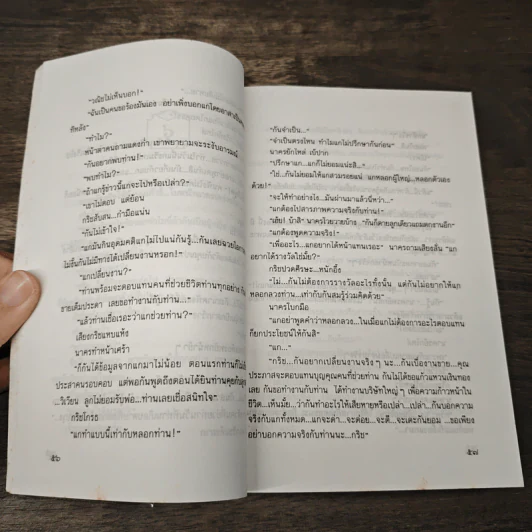 "วณิชไม่เห็นบอก!"
"ฉันเป็นคนขอร้องมันเอง อย่าเพิ่งบอกแกโดย
ทีหลัง"
"ทำไม?"
หน้าตาคนถามแดงก่ำ เขาพยายามจะระงับอารมณ์
"กันอยากพบท่าน!"
"พบทำไม?"
"ถ้าแกรู้ข่าวนี้แกจะไปหรือเปล่า?"
"เขาไม่ตอบ แต่ย้อน
กริชสับสน...กำมือแน่น
"กันไม่เข้าใจ!"
"แกมันกินอุดมคติแกไม่ไปแน่กันรู้...กันเลยฉวยโอกาส
ไม่งั้นกันไม่มีทางได้เปลี่ยนงานหรอก!"
"แกเปลี่ยนงาน?"
"ท่านพร้อมจะตอบแทนคนที่ช่วยชีวิตท่านทุกอย่าง
ขายเต็มประดา เลยขอทำงานกับท่าน..."
"แล้วท่านเชื่อเรอะว่าแกช่วยท่าน?"
เสียงกริชแหบแห้ง
นาครทำหน้าเศร้า
"ก็กันได้ข้อมูลจากแกมาไม่น้อย ตอนแรกท่านก็ไม่
ประสาคนรอบคอบ แต่พอกันพูดถึงตอนได้ยินท่านคุยกับ
...วิเวียน ลูกไม่ยอมรับพ่อ...ท่านเลยเชื่อสนิทใจ"
กริชโกรธ
"แกทำแบบนี้เท่ากับหลอกท่าน!"
๕๖
"กันจำเป็น..."
"จำเป็นตรงไหน ทำไมแกไม่ปรึกษากันก่อน"
นาครยักไหล่ เบ้ปาก
"ปรึกษาแก...แกก็ไม่ยอมน่ะสิ."
"ใช่...กันไม่ยอมให้แกสวมรอยแน่ แกหลอกผู้ใหญ่...หลอกตัวเอง
ด้วย!"
"จะให้ทำอย่างไร...มันผ่านมาแล้วนี่หว่า..."
"แกต้องไปสารภาพความจริงกับท่าน!"
"เฮ้ย! บ้าสิ" นาครโวยวายบ้าง "กันก็ตายลูกเดียวแถมตกงานอีก"
"แกต้องพูดความจริง!"
"เพื่ออะไร...แกอยากได้หน้าแทนเรอะ" นาครถามเสียงลั่น "แก
อยากได้รางวัลใช่มั้ย?"
กริชปวดศีรษะ...หนักอึ้ง
"ไม่...กันไม่ต้องการรางวัลอะไรทั้งนั้น แต่กันไม่อยากให้แก
หลอกลวงท่าน...เท่ากับกันสมรู้ร่วมคิดด้วย"
นาครโบกมือ
"แกอย่าพูดคำว่าหลอกลวง...ในเมื่อแกไม่ต้องการอะไรตอบแทน
ก็ยกประโยชน์ให้กันสิ"
"แก..."
"กริช...กันอยากเปลี่ยนงานจริง ๆ นะ...กันเบื่องานขาย...คุณ
ประภาสจะตอบแทนบุญคุณคนที่ช่วยท่าน กันไม่ได้ขอแก้วแหวนเงินทอง
เลย กันขอทำงานกับท่าน ได้ทำงานบริษัทใหญ่ ๆ เพื่อความก้าวหน้าใน
ชีวิต...เห็นมั้ย...ว่ากันทำอะไรให้เสียหายหรือเปล่า...เปล่า...กันบอกความ
จริงกับแกทั้งหมด...แกจะด่า...จะต่อย...จะตี...จะเตะกันยอม ...ขอเพียง
อย่าบอกความจริงกับท่านนะ...กริช"
๕๗